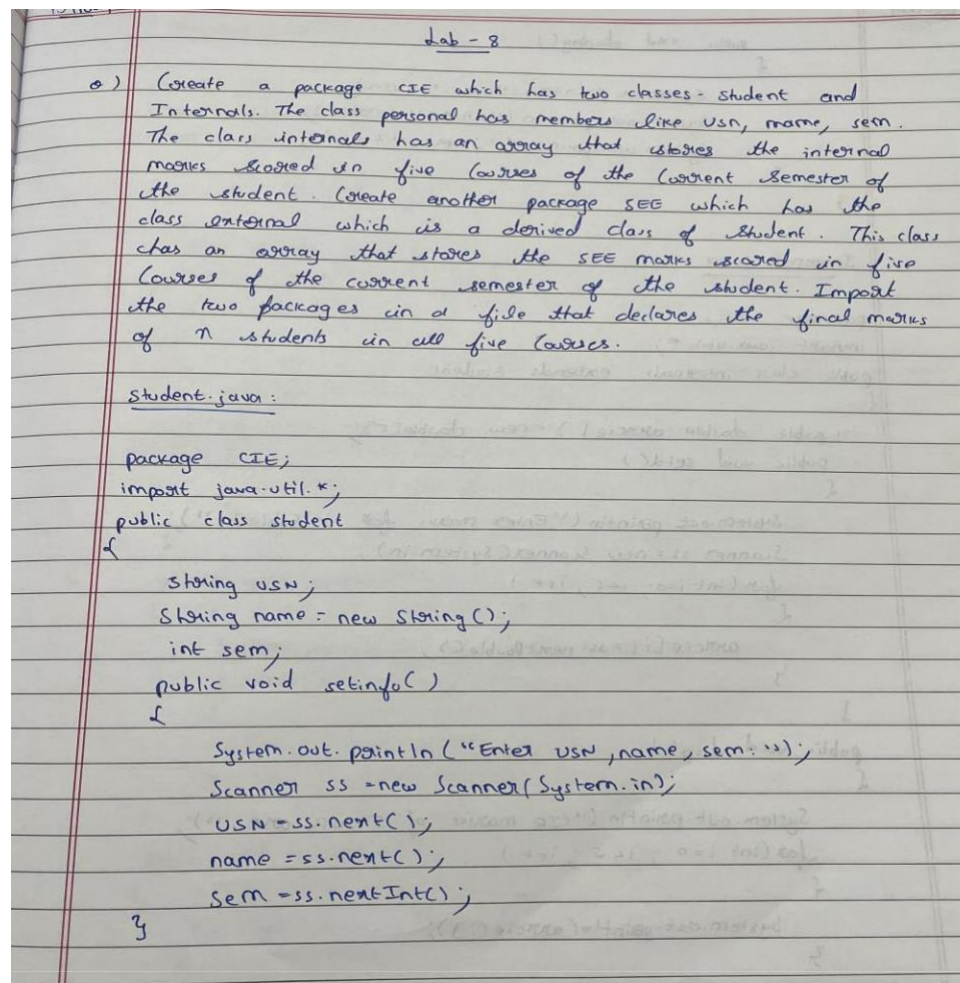 Lab - 8
Q) Create a package CIE which has two classes - student and
Internals. The class personal has members like USN, name, sem.
The class internals has an array that stores the internal
marks scored in five Courses of the Current Semester of
the student. Create another package SEE which has the
class external which is a derived class of student. This class
has an array that stores the SEE marks scored in five
Courses of the current semester of the student. Import
the two packages in a file that declares the final marks
of n students in all five Courses.
student.java:
package CIE;
import java.util.*;
public class student
{
String USN;
String name = new String();
int sem;
public void setinfo()
{
System.out.println("Enter USN, name, sem:");
Scanner ss = new Scanner(System.in);
USN = ss.next();
name = ss.next();
sem = ss.nextInt();
}